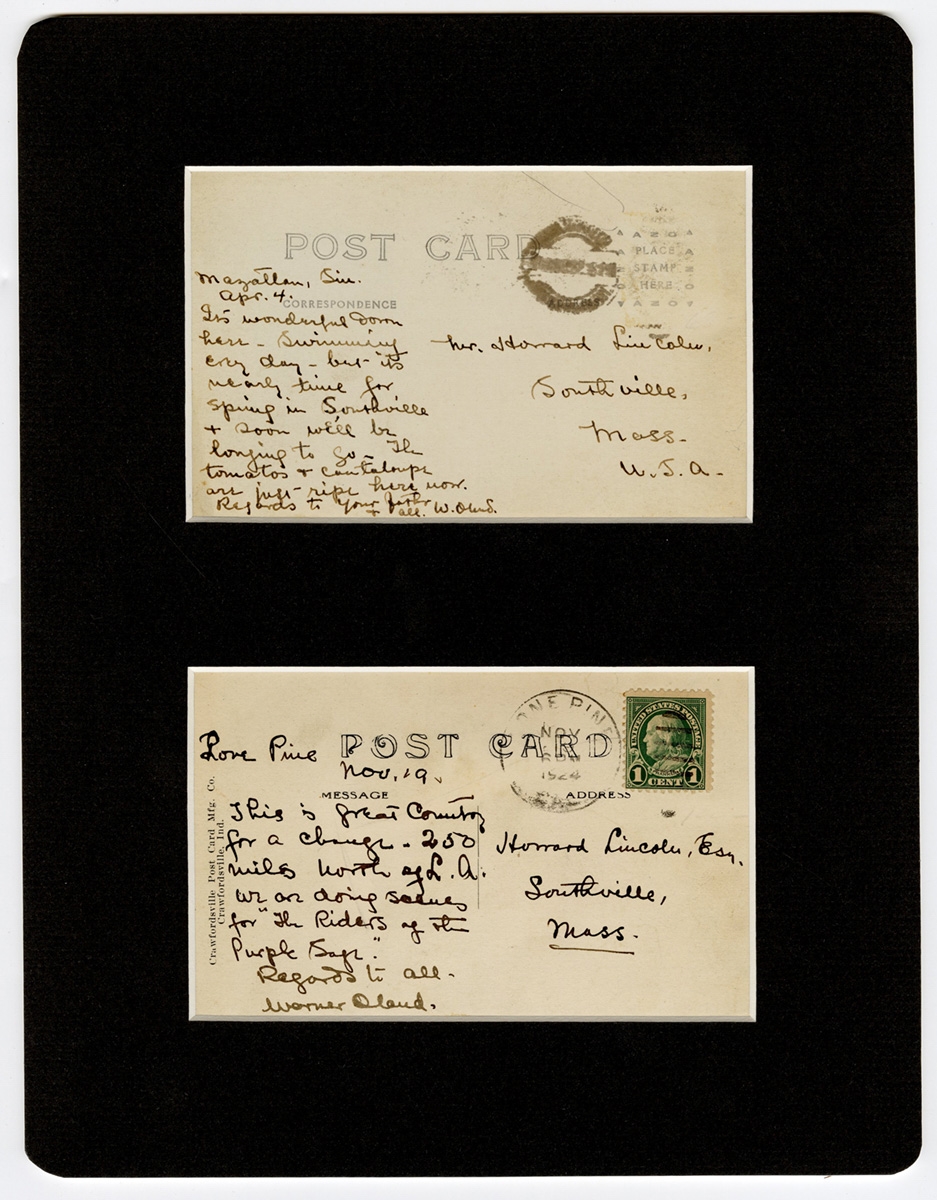 POST CARD
AZO
PLACE
STAMP
HERE
AZO
Mazatlan, Sin.
Apr. 4.
CORRESPONDENCE
ADDRESS
Its wonderful down
here - Swimming
evry day - but its
nearly time for
sping in Southville
+ soon we'll be
longing to go - The
tomatos + cantaloupe
are just ripe here now.
Regards to your father
+ all. W. Oland.
Mr. Howard Lincoln,
Southville,
Mass.
U.S.A.
POST CARD
LONE PINE
NOV
1924
UNITED STATES POSTAGE
FRANKLIN
1 CENT 1
Lone Pine
Nov. 19.
MESSAGE
ADDRESS
Crawfordsville Post Card Mfg. Co.
Crawfordsville, Ind.
This is great Country
for a change - 250
miles north of L.A.
we are doing scenes
for "The Riders of the
Purple Sage".
Regards to all.
Warner Oland.
Howard Lincoln, Esq.
Southville,
Mass.